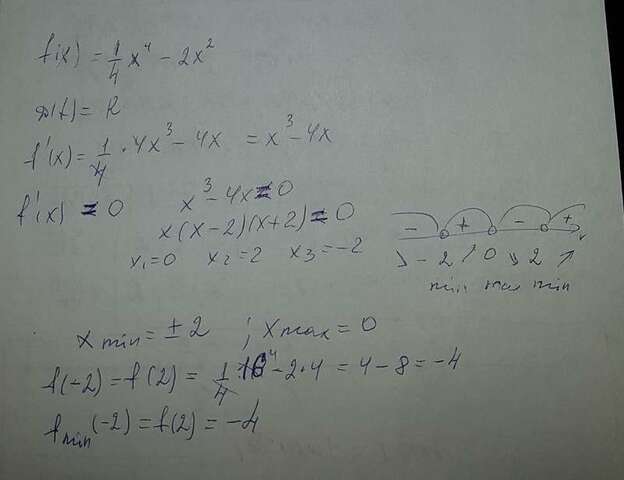 f(x) = 1/4 x⁴ − 2x²
D(f) = R
f'(x) = 1/4 · 4x³ − 4x = x³ − 4x
f'(x) = 0 x³ − 4x = 0
x(x−2)(x+2) = 0
x₁=0 x₂=2 x₃=−2
− + − + x
↘ −2 ↗ 0 ↘ 2 ↗
min max min
x min = ± 2 ; x max = 0
f(−2) = f(2) = 1/4 16⁴ − 2·4 = 4 − 8 = −4
f min (−2) = f(2) = −4